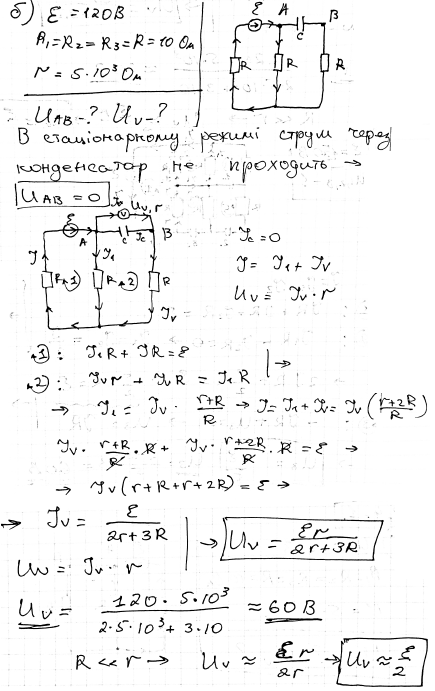 б) Ɛ = 120 В
R₁ = R₂ = R₃ = R = 10 Ом
r = 5·10³ Ом
U_AB - ? U_V - ?
Ɛ A C B
R R R
В стаціонарному режимі струм через
конденсатор не проходить →
U_AB = 0
Ɛ A I_V V U_V, r C I_C B
I R 1) I₁ R 2) R I_V
I_C = 0
I = I₁ + I_V
U_V = I_V · r
1): I₁R + IR = Ɛ | →
2): I_V r + I_V R = I₁ R
→ I₁ = I_V · (r+R)/R → I = I₁ + I_V = I_V ((r+2R)/R)
I_V · (r+R)/R · R + I_V · (r+2R)/R · R = Ɛ →
→ I_V (r + R + r + 2R) = Ɛ →
→ I_V = Ɛ/(2r+3R) | → U_V = Ɛr/(2r+3R)
U_V = I_V · r
U_V = (120 · 5·10³)/(2·5·10³ + 3·10) ≈ 60 В
R << r → U_V ≈ Ɛr/2r → U_V ≈ Ɛ/2